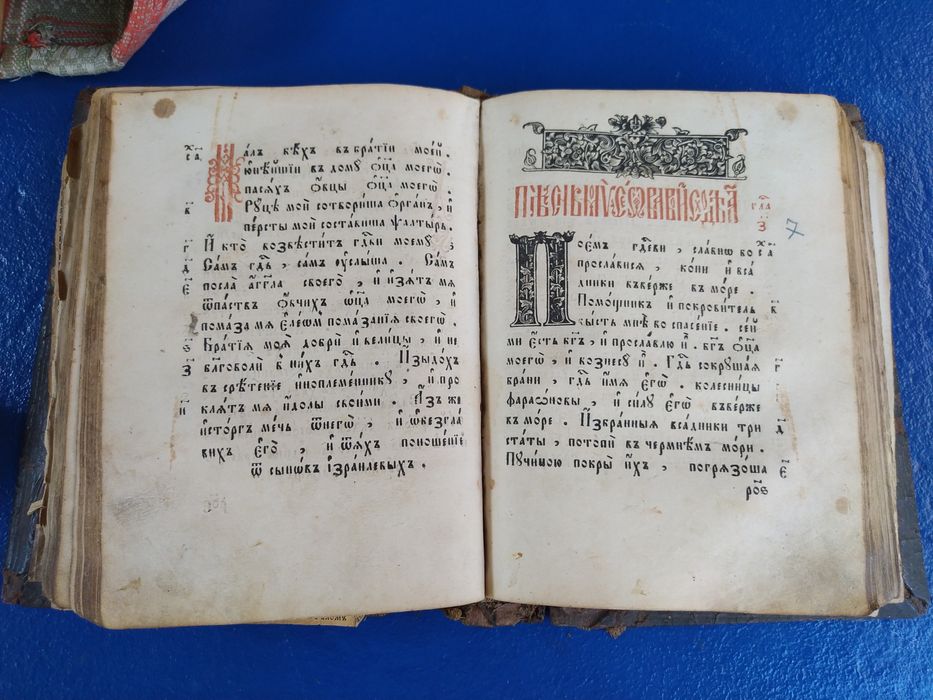 Ма́лъ бѣ́хъ въ бра́тїи мое́й .
ю҆нѣ́йшїи въ дому̀ ѻ҆ц҃а̀ моегѡ̀ .
пася́хъ ѻ҆́вцы ѻ҆ц҃а̀ моегѡ̀ .
Ру́цѣ мои̑ сотвори́ша ѻ҆рга́нъ , и҆
пе́рсты мои̑ соста́виша ѱалты́рь .
И҆ кто̀ возвѣсти́тъ гд҃ви моему̀
Са́мъ гд҃ь , са́мъ ѹ҆слы́ша . Са́мъ
посла̀ а҆́гг҃ла своего̀ , и҆ и҆зѧ́тъ мя
ѿ па́ствъ ѻ҆́вчихъ ѻ҆ц҃а̀ моегѡ̀ , и҆
пома́за мя е҆ле́ѡмъ пома́занїя своегѡ̀ .
Бра́тїя моѧ̑ добри̑ и҆ вели́цы , и҆ не
бл҃говолѝ в ни́хъ гд҃ь . И҆зыдо́хъ
въ срѣ́тенїе и҆ноплеме́ннику , и҆ про
кля́тъ мя и҆́долы свои́ми . А҆́зъ же
и҆сто́ргъ ме́чь ѿ негѡ̀ , и҆ ѡ҆безгла́
вихъ є҆го̀ , и҆ ѿя́хъ поноше́нїе
ѿ сынѡ́въ і҆зра́илевыхъ .
гла
з҃
7
Пое́мъ гд҃еви , сла́внѡ бо
просла́вися , ко́ни и҆ вса́
дники вве́рже въ мо́ре .
Помо́щникъ и҆ покрови́тель
бы́сть мнѣ̀ во спасе́нїе . се́й
ми є҆́сть бг҃ъ , и҆ просла́влю и҆̀ . бг҃ъ ѻ҆ц҃а̀
моегѡ̀ , и҆ вознесу̀ и҆̀ . Гд҃ь сокруша́я
бра́ни , гд҃ь и҆́мя є҆гѡ̀ . колесни́цы
фараѡ́новы , и҆ си́лу є҆гѡ̀ вве́рже
въ мо́ре . И҆збра́нныя вса́дники три
ста́ты , потопѝ въ чермнѣ́мъ мо́ри .
Пучи́ною покры̀ и҆̀хъ , погрязо́ша